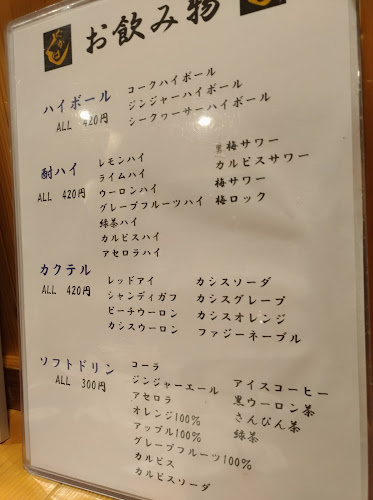 お飲み物
ハイボール
ALL 420円
コークハイボール
ジンジャーハイボール
シークワーサーハイボール
酎ハイ
ALL 420円
レモンハイ
ライムハイ
ウーロンハイ
グレープフルーツハイ
緑茶ハイ
カルピスハイ
アセロラハイ
黒梅サワー
カルピスサワー
梅サワー
梅ロック
カクテル
ALL 420円
レッドアイ
シャンディガフ
ピーチウーロン
カシスウーロン
カシスソーダ
カシスグレープ
カシスオレンジ
ファジーネーブル
ソフトドリン
ALL 300円
コーラ
ジンジャーエール
アセロラ
オレンジ100%
アップル100%
グレープフルーツ100%
カルピス
カルピスソーダ
アイスコーヒー
黒ウーロン茶
さんぴん茶
緑茶